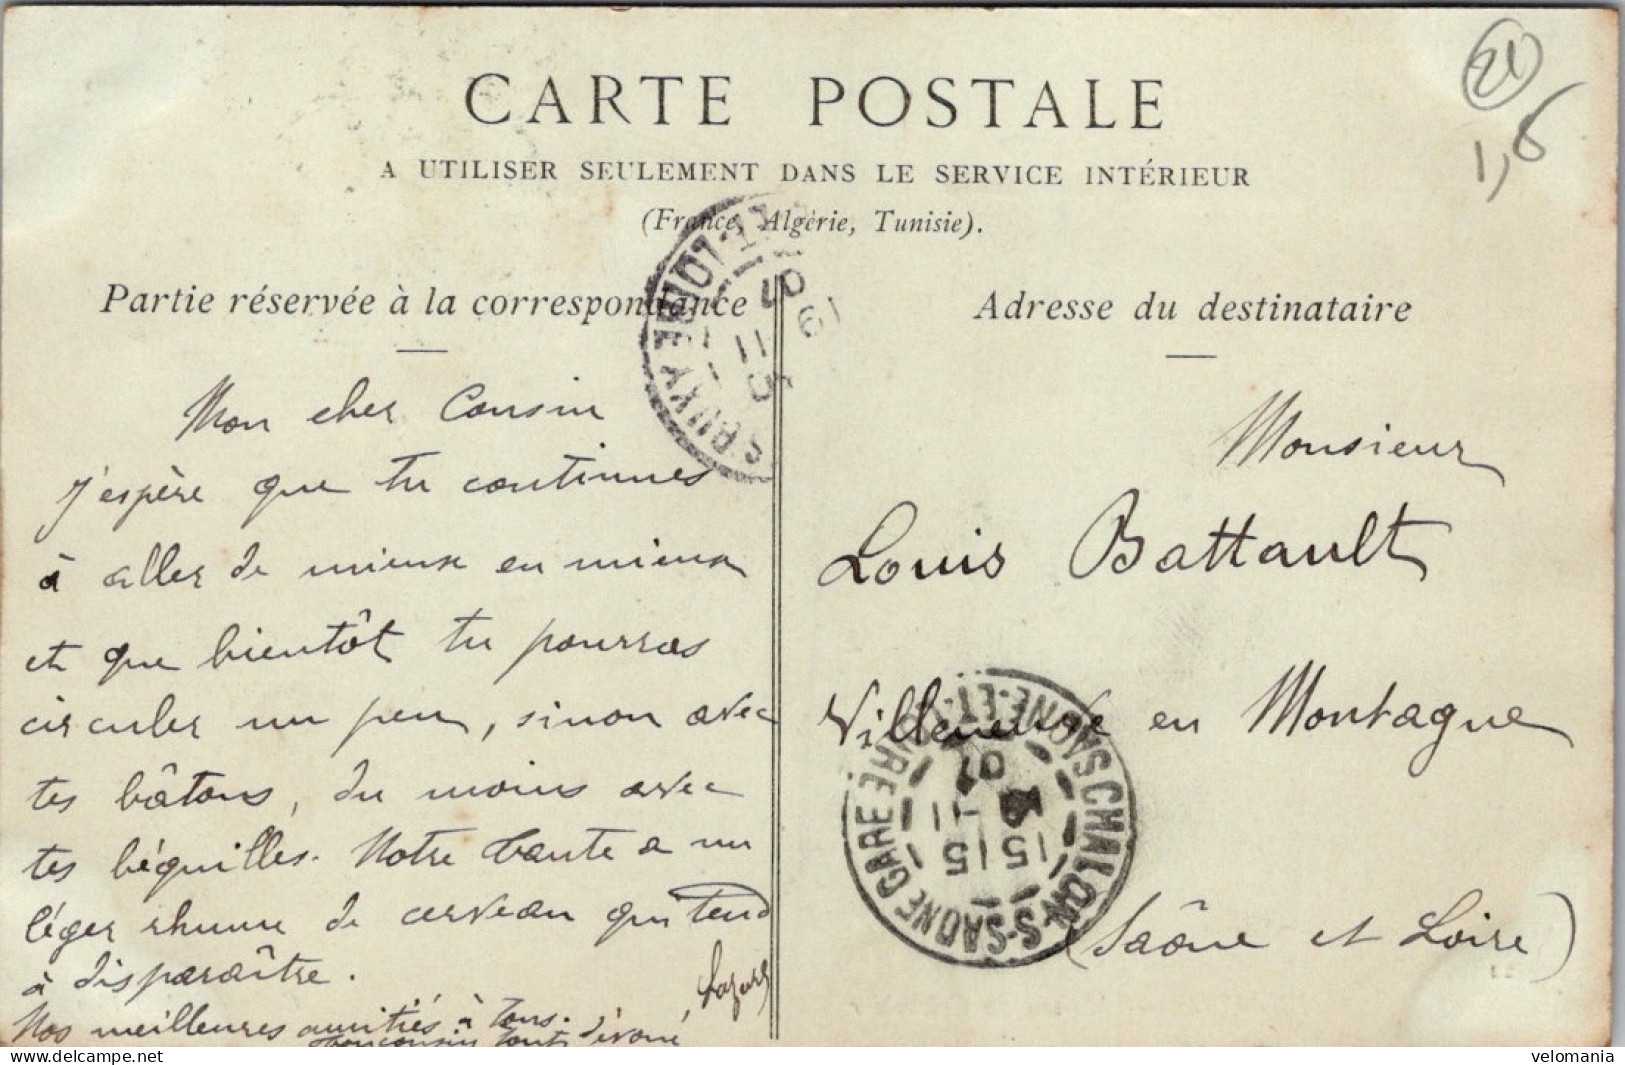 CARTE POSTALE
A UTILISER SEULEMENT DANS LE SERVICE INTÉRIEUR
(France, Algérie, Tunisie).
21
1,6
Partie réservée à la correspondance
Mon cher Cousin
J'espère que tu continues
à aller de mieux en mieux
et que bientôt tu pourras
circuler un peu, sinon avec
tes bâtons, du moins avec
tes béquilles. Notre tante a un
léger rhume de cerveau qui tend
à disparaître.
Nos meilleures amitiés à tous.
Ton cousin tout dévoué,
Adresse du destinataire
Monsieur
Louis Battault
Villeneuve en Montagne
(Saône et Loire)
CHALON-S-SAONE GARE
SAONE-ET-LOIRE
15 15
07
delcampe.net
velomania